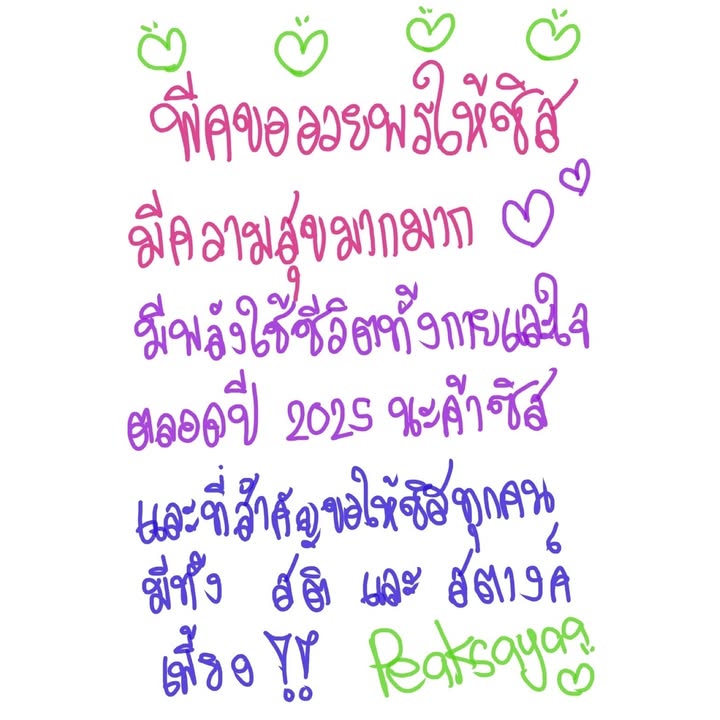 พีคขออวยพรให้ซิส
มีความสุขมากมาก
มีพลังใช้ชีวิตทั้งกายและใจ
ตลอดปี 2025 นะค้าซิส
และที่สำคัญขอให้ซิสทุกคน
มีทั้ง สติ และ สตางค์
เพี้ยง !!
Peaksayaa